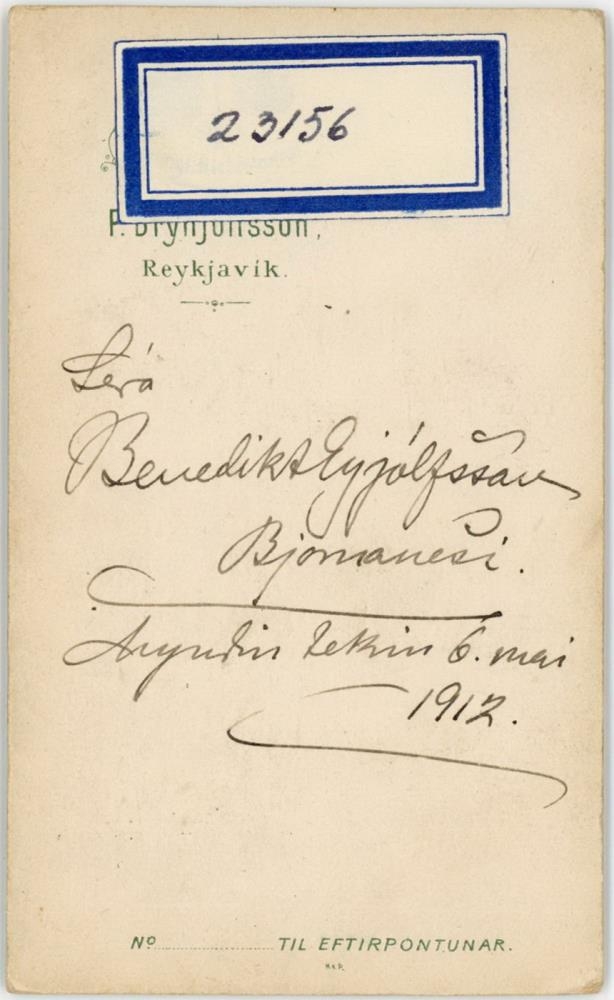 23156
P. Brynjólfsson,
Reykjavík.
Séra
Benedikt Eyjólfsson
Bjarnanesi.
Myndin tekin 6. mai
1912.
No TIL EFTIRPÖNTUNAR.